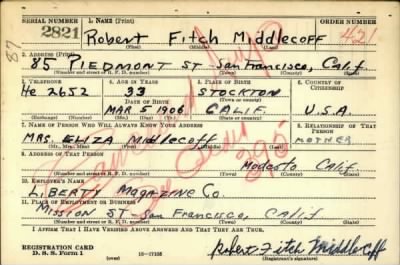 SERIAL NUMBER 1. NAME (Print) ORDER NUMBER
2821 Robert Fitch Middlecoff 421
(First) (Middle) (Last)
2. ADDRESS (Print)
85 PIEDMONT ST San Francisco, Calif.
(Number and street or R. F. D. number) (Town) (County) (State)
3. TELEPHONE 4. AGE IN YEARS 5. PLACE OF BIRTH 6. COUNTRY OF CITIZENSHIP
He 2652 33 STOCKTON
DATE OF BIRTH (Town or county)
MAR 5 1906 CALIF. U.S.A.
(Mo.) (Day) (Yr.) (State or country)
7. NAME OF PERSON WHO WILL ALWAYS KNOW YOUR ADDRESS 8. RELATIONSHIP OF THAT PERSON
MRS. ELIZA Middlecoff MOTHER
(Mr., Mrs., Miss) (First) (Middle) (Last)
9. ADDRESS OF THAT PERSON
Modesto Calif.
(Number and street or R. F. D. number) (Town) (County) (State)
10. EMPLOYER'S NAME
LIBERTY MAGAZINE Co.
11. PLACE OF EMPLOYMENT OR BUSINESS
MISSION ST - San Francisco, Calif
(Number and street or R. F. D. number) (Town) (County) (State)
I AFFIRM THAT I HAVE VERIFIED ABOVE ANSWERS AND THAT THEY ARE TRUE.
REGISTRATION CARD
D. S. S. Form 1 (over) Robert Fitch Middlecoff
(Registrant's signature)